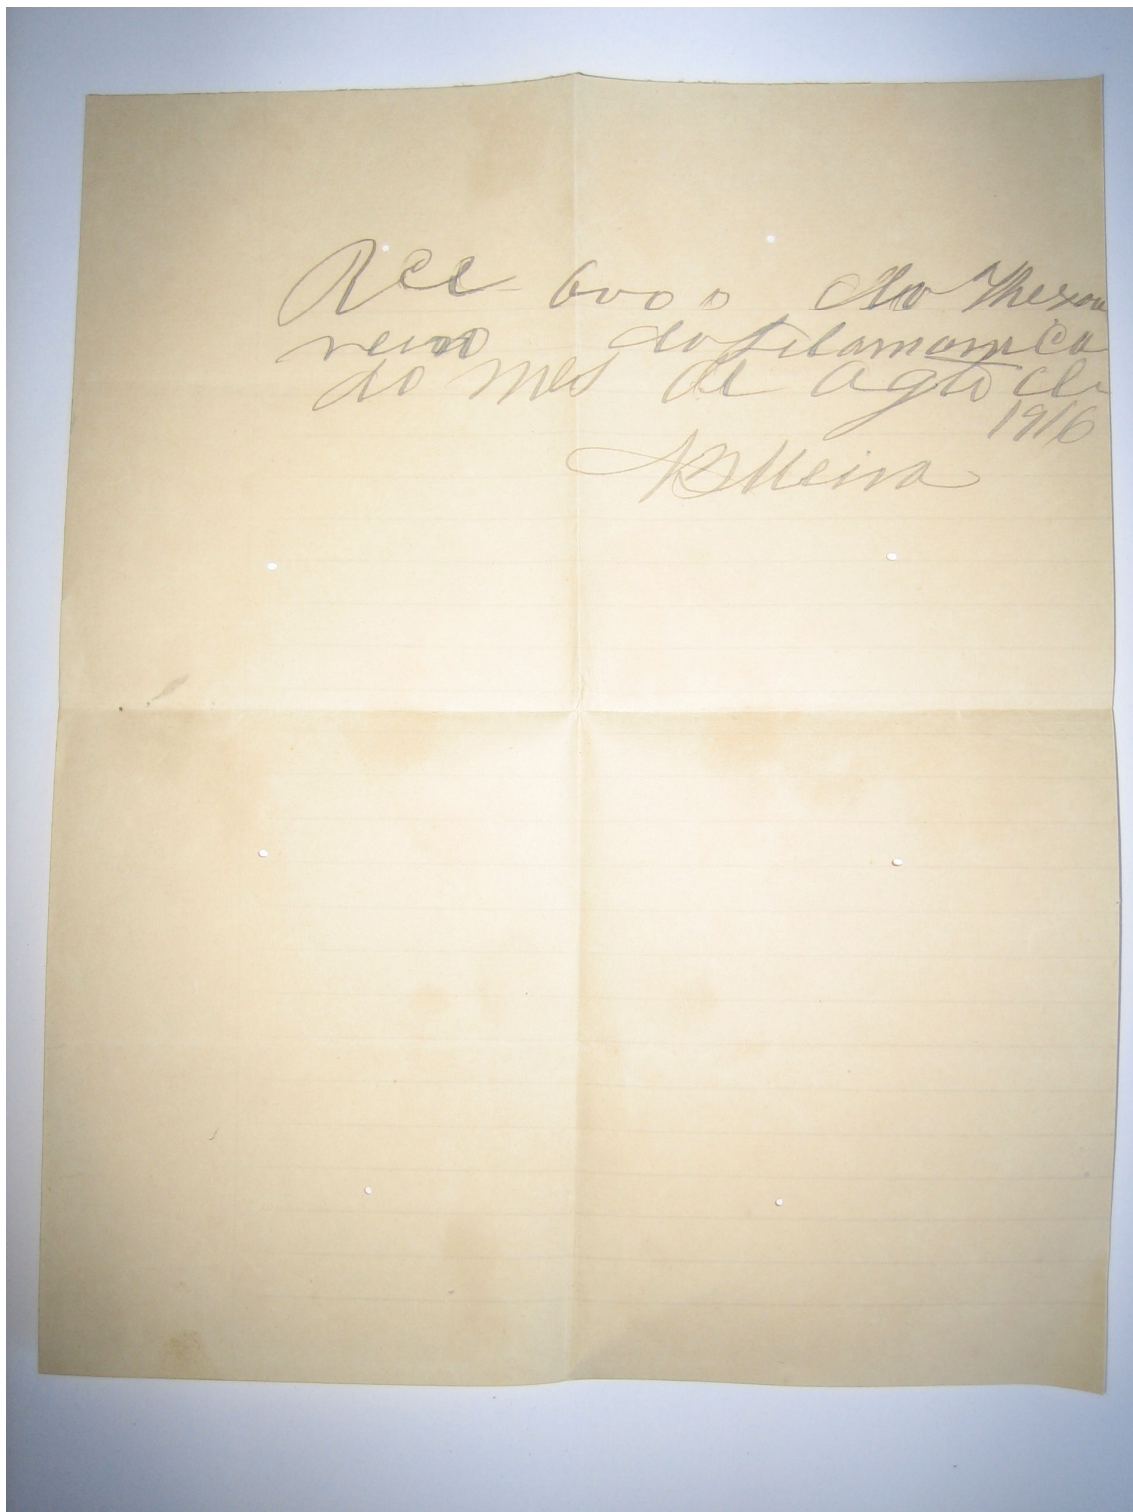 Rec 6000 do Thesou
reiro da Filarmonica
do mes de Agto de
1916
Meira